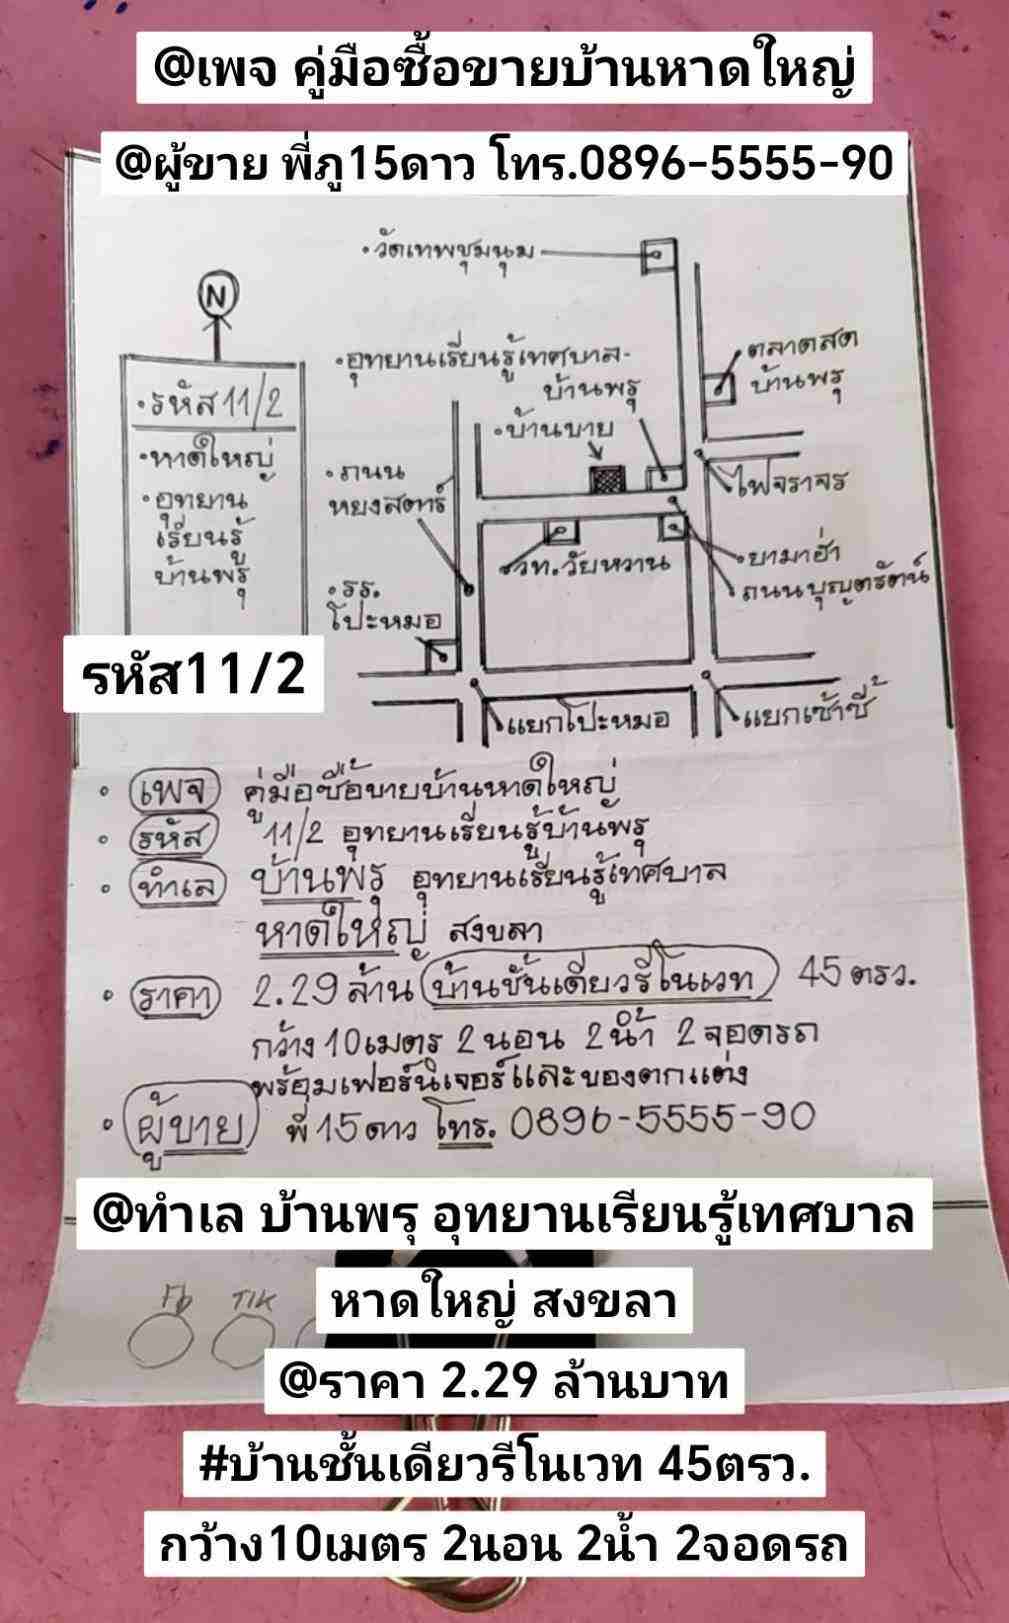 @เพจ คู่มือซื้อขายบ้านหาดใหญ่
@ผู้ขาย พี่ภู15ดาว โทร.0896-5555-90
•วัดเทพชุมนุม
N
•อุทยานเรียนรู้เทศบาล-
บ้านพรุ
•ตลาดสด
บ้านพรุ
•รหัส 11/2
•หาดใหญ่
•อุทยาน
เรียนรู้
บ้านพรุ
•บ้านขาย
•ถนน
หยงสตาร์
ไฟจราจร
•ยามาฮ่า
ถนนบุญตรัตน์
วท.วัยหวาน
•รร.
โปะหมอ
แยกโปะหมอ
แยกเซ้าซี้
รหัส11/2
• เพจ คู่มือซื้อขายบ้านหาดใหญ่
• รหัส 11/2 อุทยานเรียนรู้บ้านพรุ
• ทำเล บ้านพรุ อุทยานเรียนรู้เทศบาล
หาดใหญ่ สงขลา
• ราคา 2.29 ล้าน บ้านชั้นเดียวรีโนเวท 45 ตรว.
กว้าง 10เมตร 2 นอน 2น้ำ 2 จอดรถ
พร้อมเฟอร์นิเจอร์และของตกแต่ง
• ผู้ขาย พี่ 15 ดาว โทร. 0896-5555-90
@ทำเล บ้านพรุ อุทยานเรียนรู้เทศบาล
หาดใหญ่ สงขลา
Fb TIK
@ราคา 2.29 ล้านบาท
#บ้านชั้นเดียวรีโนเวท 45ตรว.
กว้าง10เมตร 2นอน 2น้ำ 2จอดรถ